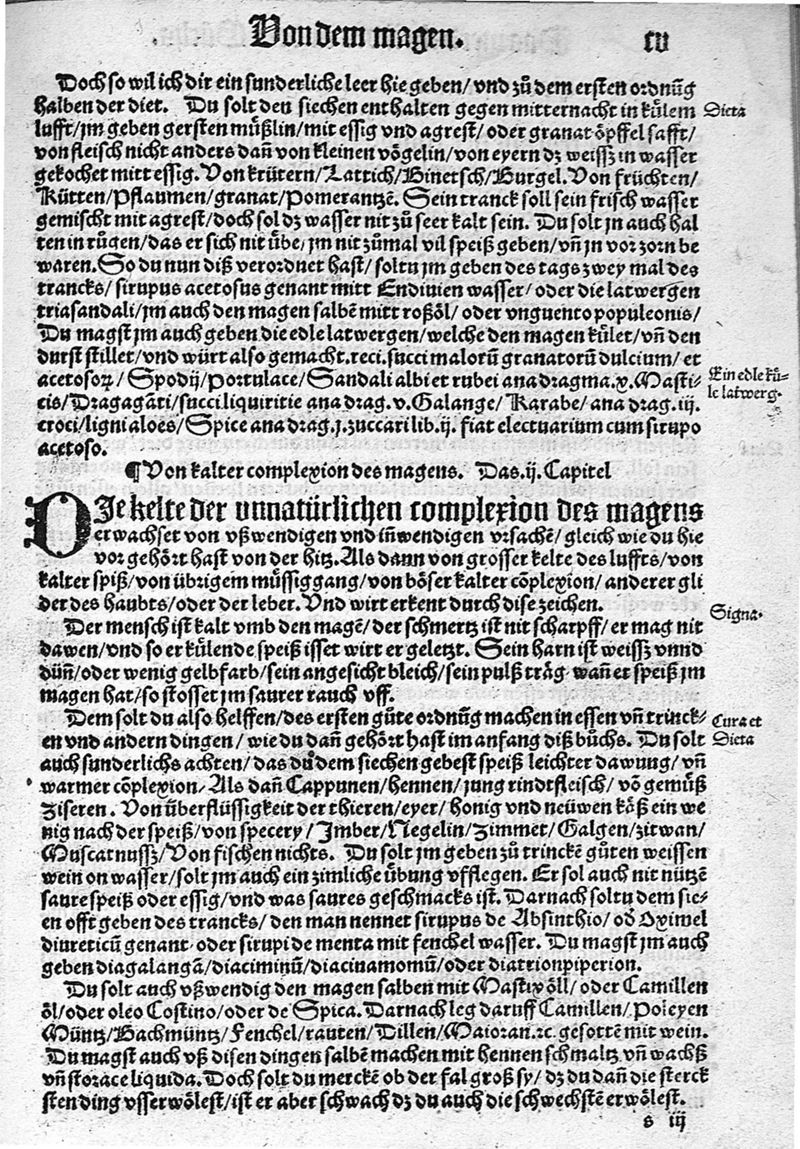 Von dem magen. cv
Doch so wil ich dir ein sunderliche leer hie geben/ vnd zů dem ersten ordnũg
halben der diet. Du solt den siechen enthalten gegen mitternacht in kůlem
Dieta
lufft/ jm geben gersten müßlin/ mit essig vnd agrest/ oder granat öpffel safft/
von fleisch nicht anders dañ von kleinen vögelin/ von eyern dz weissz in wasser
gekochet mitt essig. Von krütern/ Lattich/ Binetsch/ Burgel. Von früchten/
Kütten/ Pflaumen/ granat/ Pomerantzẽ. Sein tranck soll sein frisch wasser
gemischt mit agrest/ doch sol dz wasser nit zů seer kalt sein. Du solt jn auch hal
ten in růgen/ das er sich nit übe/ jm nit zůmal vil speiß geben/ vñ jn vor zorn be
waren. So du nun diß verordnet hast/ soltu jm geben des tags zwey mal des
trancks/ sirupus acetosus genant mitt Endiuien wasser/ oder die latwergen
triasandali/ jm auch den magen salbẽ mitt roßöl/ oder vnguento populeonis/
Du magst jm auch geben die edle latwergen/ welche den magen kület/ vñ den
durst stillet/ vnd würt also gemacht. reci. succi malorũ granatorũ dulcium/ et
acetosoꝝ/ Spodij/ Portulace/ Sandali albi et rubei ana dragma. x. Masti⸗
Ein edle kü⸗
le latwerg.
cis/ Dragagãti/ succi liquiritie ana drag. v. Galange/ Karabe/ ana drag. iij.
croci/ ligni aloes/ Spice ana drag. j. zuccari lib. ij. fiat electuarium cum sirupo
acetoso.
¶ Von kalter complexion des magens. Das. ij. Capitel
DJe kelte der vnnatürlichen complexion des magens
erwachset von vßwendigen vnd iñwendigen vrsachẽ/ gleich wie du hie
vor gehört hast von der hitz. Als dann von grosser kelte des luffts/ von
kalter spiß/ von übrigem müssiggang/ von böser kalter cõplexion/ anderer gli
der des haubts/ oder der leber. Vnd wirt erkent durch dise zeichen.
Signa.
Der mensch ist kalt vmb den magẽ/ der schmertz ist nit scharpff/ er mag nit
dawen/ vnd so er külende speiß isset wirt er geletzt. Sein harn ist weissz vnnd
düñ/ oder wenig gelbfarb/ sein angesicht bleich/ sein pulß träg. wañ er speiß jm
magen hat/ so stosset jm saurer rauch vff.
Dem solt du also helffen/ des ersten gůte ordnũg machen in essen vñ trinck⸗
Cura et
Dieta
en vnd andern dingen/ wie du dañ gehört hast im anfang diß bůchs. Du solt
auch sunderlichs achten/ das du dem siechen gebest speiß leichter dawung/ vñ
warmer cõplexion. Als dañ Cappunen/ hennen/ jung rindtfleisch/ võ gemüß
Ziseren. Von überflüssigkeit der thieren/ eyer/ honig vnd neüwen käß ein we
nig nach der speiß/ von specery/ Jmber/ Negelin/ Zimmet/ Galgen/ zitwan/
Muscatnussz/ Von fischen nichts. Du solt jm geben zů trinckẽ gůten weissen
wein on wasser/ solt jm auch ein zimliche übung vfflegen. Er sol auch nit nützẽ
saure speiß oder essig/ vnd was saures geschmacks ist. Darnach soltu dem sie⸗
en offt geben des trancks/ den man nennet sirupus de Absinthio/ oď Oximel
diureticũ genant. oder sirupi de menta mit fenchel wasser. Du magst jm auch
geben diagalangã/ diaciminũ/ diacinamomũ/ oder diatrionpiperion.
Du solt auch vßwendig den magen salben mit Mastix öll/ oder Camillen
öl/ oder oleo Costino/ oder de Spica. Darnach leg daruff Camillen/ Poleyen
Müntz/ Bachmüntz/ Fenchel/ rauten/ Dillen/ Maioran. ꝛc. gesottẽ mit wein.
Du magst auch vß disen dingen salbẽ machen mit hennen schmaltz vñ wachß
vñ storace liquida. Doch solt du merckẽ ob der fal groß sy/ dz du dañ die sterck
sten ding vsserwölest/ ist er aber schwach dz du auch die schwechstẽ erwölest.
s iij